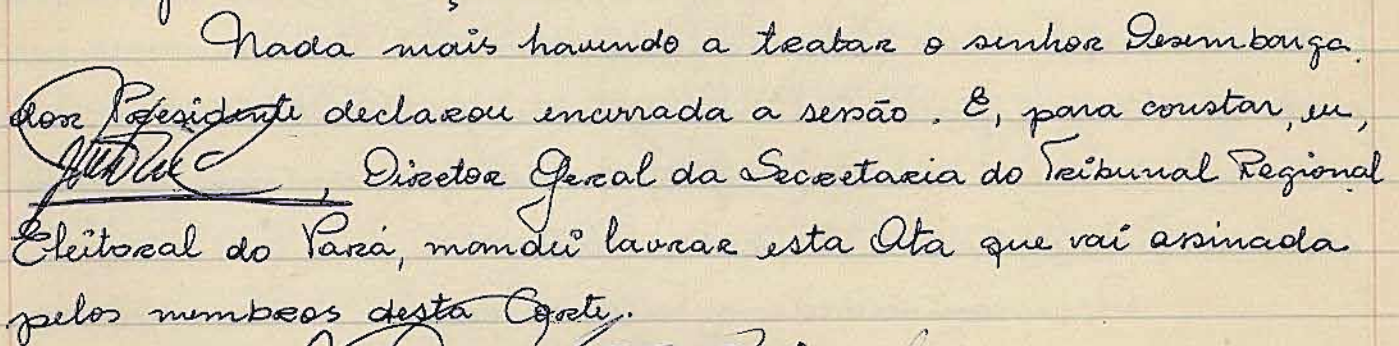 Nada mais havendo a tratar o senhor Desembarga
dor Presidente declarou encerrada a sessão. E, para constar, eu,
, Diretor Geral da Secretaria do Tribunal Regional
Eleitoral do Pará, mandei lavrar esta Ata que vai assinada
pelos membros desta Corte.